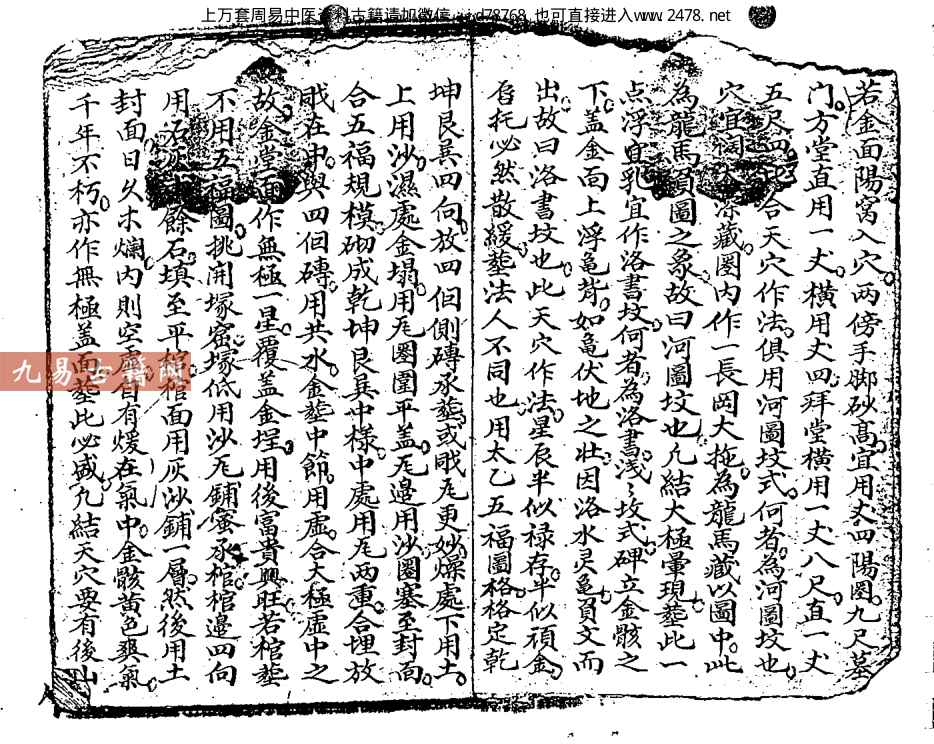 上万套周易中医 料古籍请加微信 d78768 也可直接进入www.2478.net
若金面陽窝入穴。两傍手脚砂髙。宜用丈四陽圏。九尺墓
门。方堂直用一丈。横用丈四。拜堂横用一丈八尺。直一丈
五尺四 合天穴作法。俱用河圖坟式。何者為河圖坟也
穴宜 深藏。圏内作一長 大 為龍馬藏以圖中。此
為龍馬負圖之象。故曰河圖坟也。凢結大極暈現。塟此一
点浮宜乳宜作洛書坟。何者為洛書浅々坟式。碑立金骸之
下。盖金面上浮亀背。如亀伏地之壮。因洛水灵亀負文而
出。故曰洛書坟也。此天穴作法。星辰半似禄存。半似頑金。
唇托必然散緩。塟法人不同也。用太乙五福圖格。格定乾
坤艮巽四向。放四個側磚承塟。或戝瓦更妙。燥處下用土。
上用沙。濕處金塌。用瓦圏圍平盖。瓦邉用沙圏塞至封面。
合五福規模。砌成乾坤艮巽中樣。中處用瓦两重合埋放
戝在中。與四個磚。用共水金塟中節。用虚合大極虚中之
故。金堂面作無極一星。覆盖金埕。用後富貴興旺。若棺塟
不用五福圖。挑開塚窑。塚低用沙瓦鋪蜜承棺。棺邉四向
用石灰 餘石填至平棺。棺面用灰沙鋪一層。然後用土
封面。日久木爛。内則空虚。自有煖在氣中。金骸黄色爽氣。
千年不朽。亦作無極盖面塟。此必盛。凢結天穴。要有後山
九易古籍網